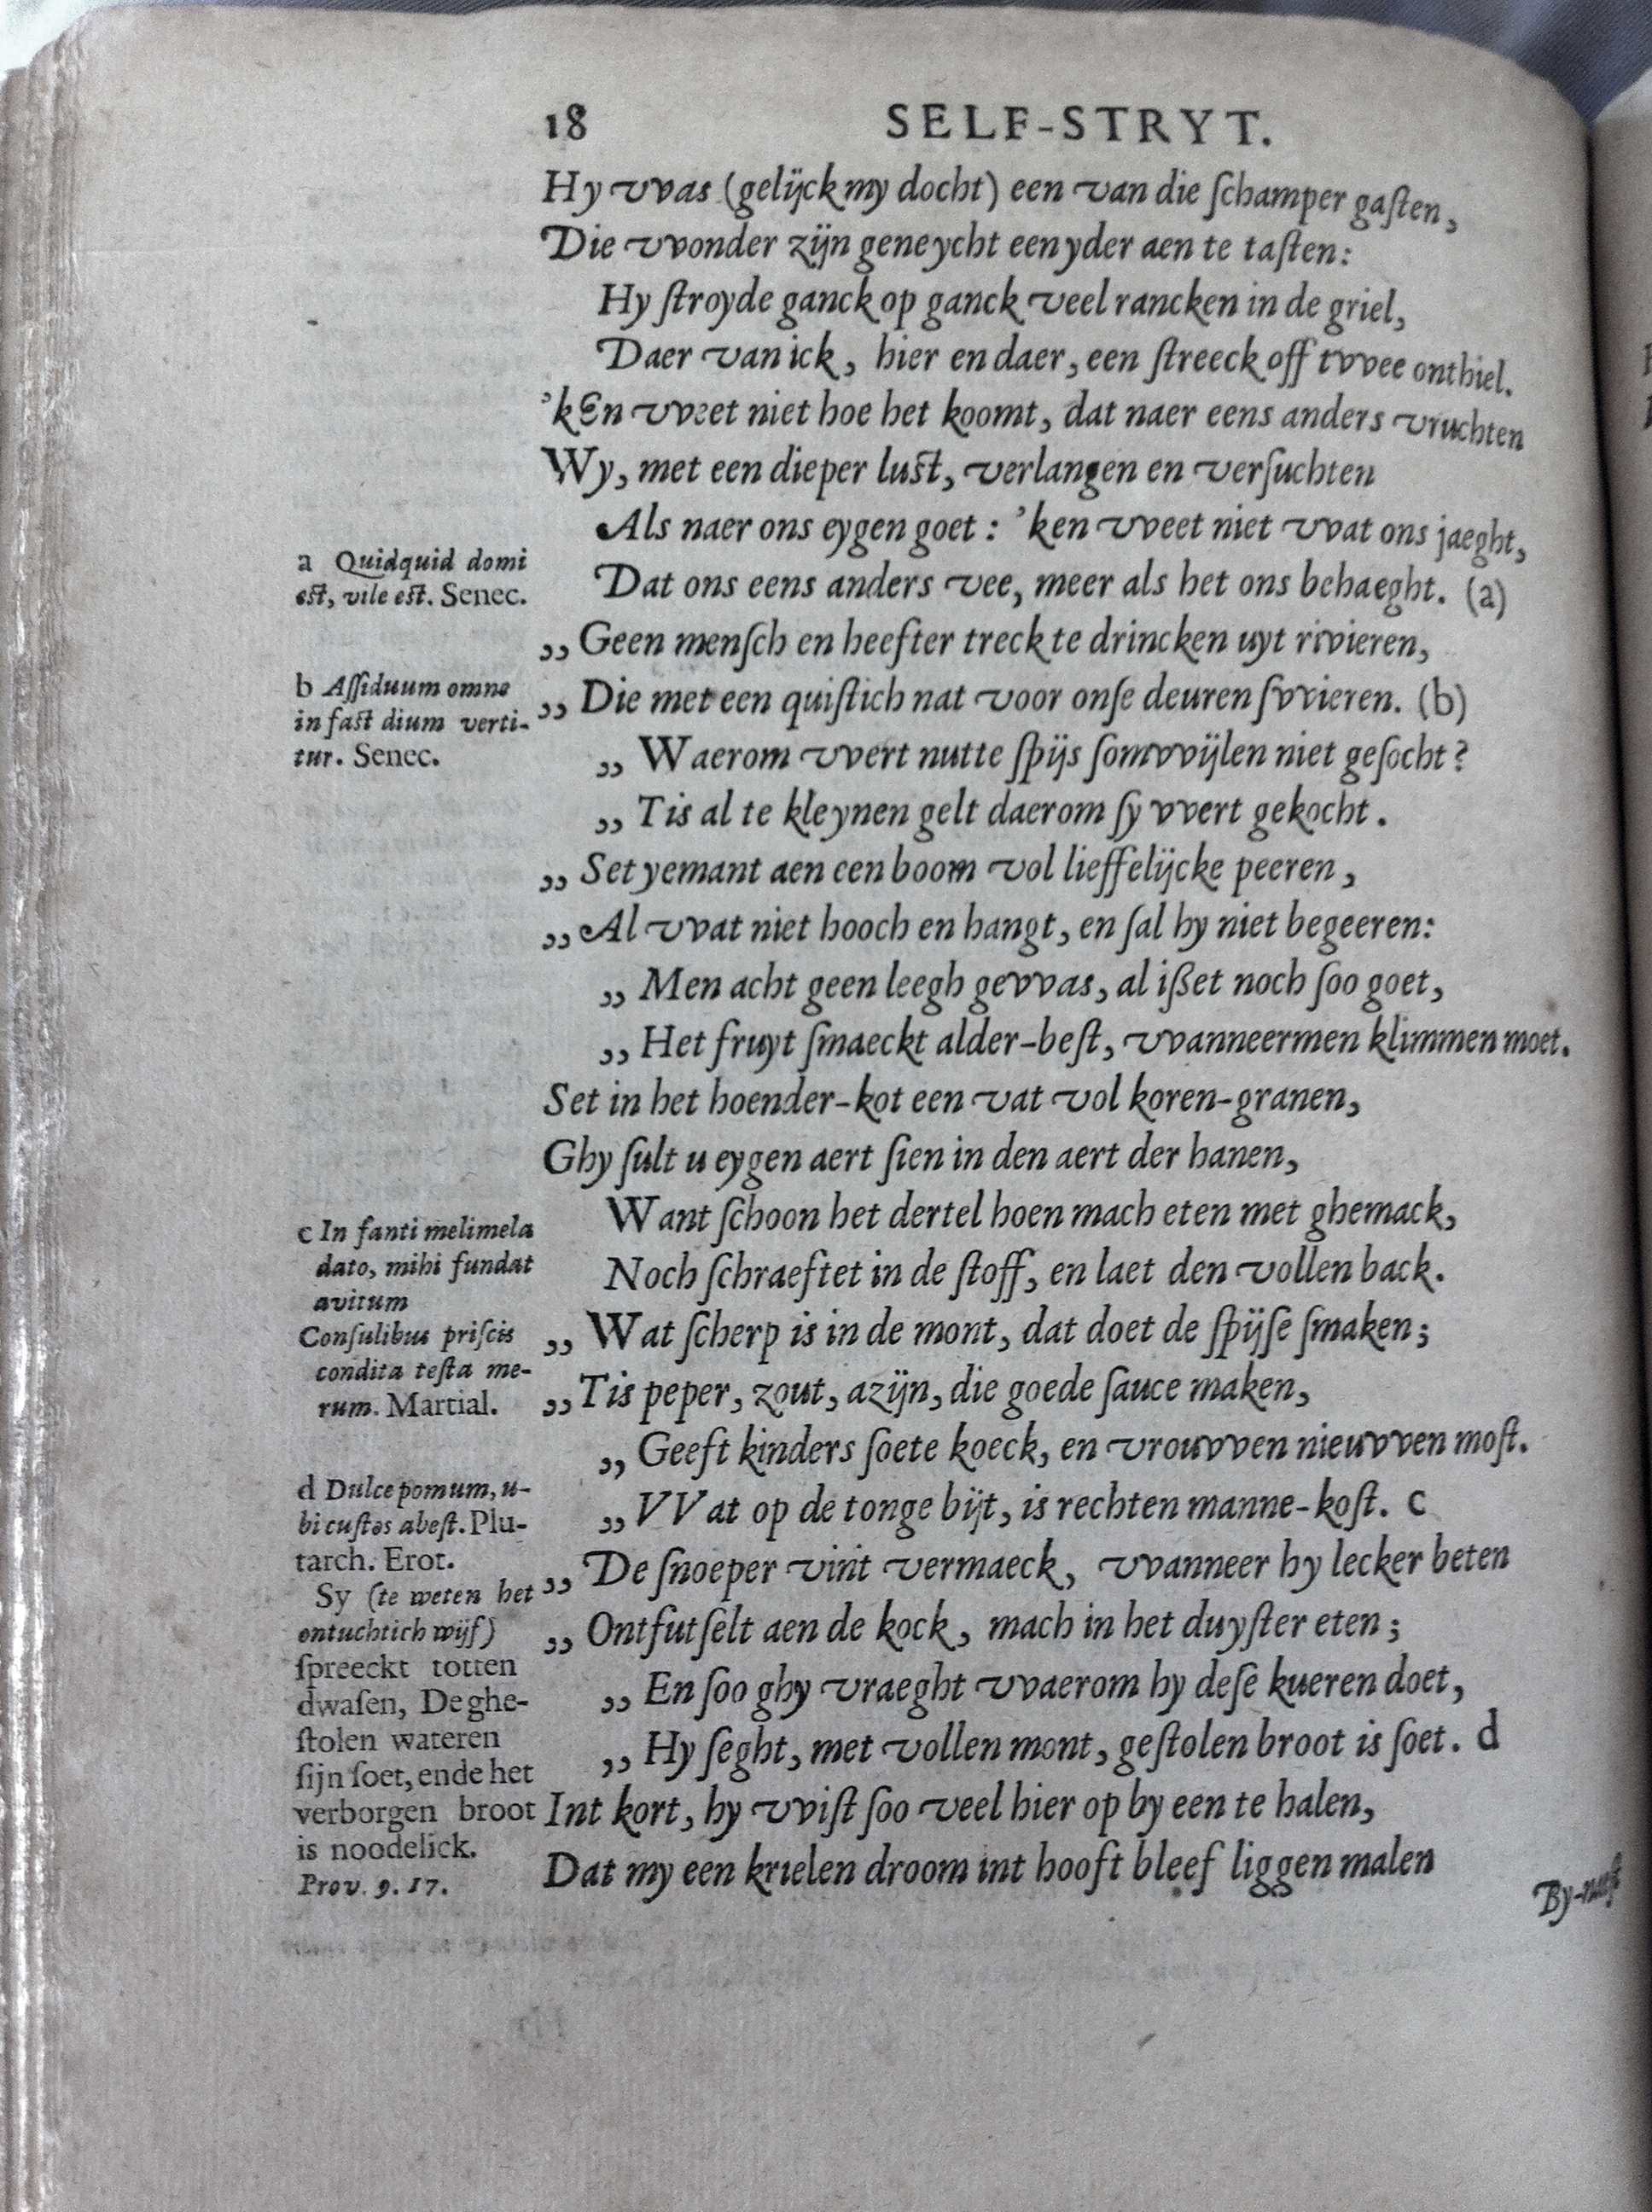 18 SELF-STRYT.
Hy vvas (gelijck my docht) een van die ſchamper gaſten,
Die vvonder zijn geneycht een yder aen te taſten:
Hy ſtroyde ganck op ganck veel rancken in de griel,
Daer van ick, hier en daer, een ſtreeck off tvvee onthiel.
'kEn vveet niet hoe het koomt, dat naer eens anders vruchten
Wy, met een dieper luſt, verlangen en verſuchten
Als naer ons eygen goet: 'ken vveet niet vvat ons jaeght,
Dat ons eens anders vee, meer als het ons behaeght. (a)
„ Geen menſch en heefter treck te drincken uyt rivieren,
„ Die met een quiſtich nat voor onſe deuren ſvvieren. (b)
„ Waerom vvert nutte ſpijs ſomvvijlen niet geſocht?
„ Tis al te kleynen gelt daerom ſy vvert gekocht.
„ Set yemant aen een boom vol lieffelijcke peeren,
„ Al vvat niet hooch en hangt, en ſal hy niet begeeren:
„ Men acht geen leegh gevvas, al ißet noch ſoo goet,
„ Het fruyt ſmaeckt alder-beſt, vvanneermen klimmen moet.
Set in het hoender-kot een vat vol koren-granen,
Ghy ſult u eygen aert ſien in den aert der hanen,
Want ſchoon het dertel hoen mach eten met ghemack,
Noch ſchraeftet in de ſtoff, en laet den vollen back.
„ Wat ſcherp is in de mont, dat doet de ſpijſe ſmaken;
„ Tis peper, zout, azijn, die goede ſauce maken,
„ Geeft kinders ſoete koeck, en vrouvven nieuvven moſt.
„ VVat op de tonge bijt, is rechten manne-koſt. c
„ De ſnoeper vint vermaeck, vvanneer hy lecker beten
„ Ontfutſelt aen de kock, mach in het duyſter eten;
„ En ſoo ghy vraeght vvaerom hy deſe kueren doet,
„ Hy ſeght, met vollen mont, geſtolen broot is ſoet. d
Int kort, hy vviſt ſoo veel hier op by een te halen,
Dat my een krielen droom int hooft bleef liggen malen
a Quidquid domi
eſt, vile eſt. Senec.
b Aſſiduum omne
in faſt dium verti-
tur. Senec.
c In fanti melimela
dato, mihi fundat
avitum
Conſulibus priſcis
condita teſta me-
rum. Martial.
d Dulce pomum, u-
bi cuſtos abeſt. Plu-
tarch. Erot.
Sy (te weten het
ontuchtich wijf)
ſpreeckt totten
dwaſen, De ghe-
ſtolen wateren
ſijn ſoet, ende het
verborgen broot
is noodelick.
Prov. 9. 17.